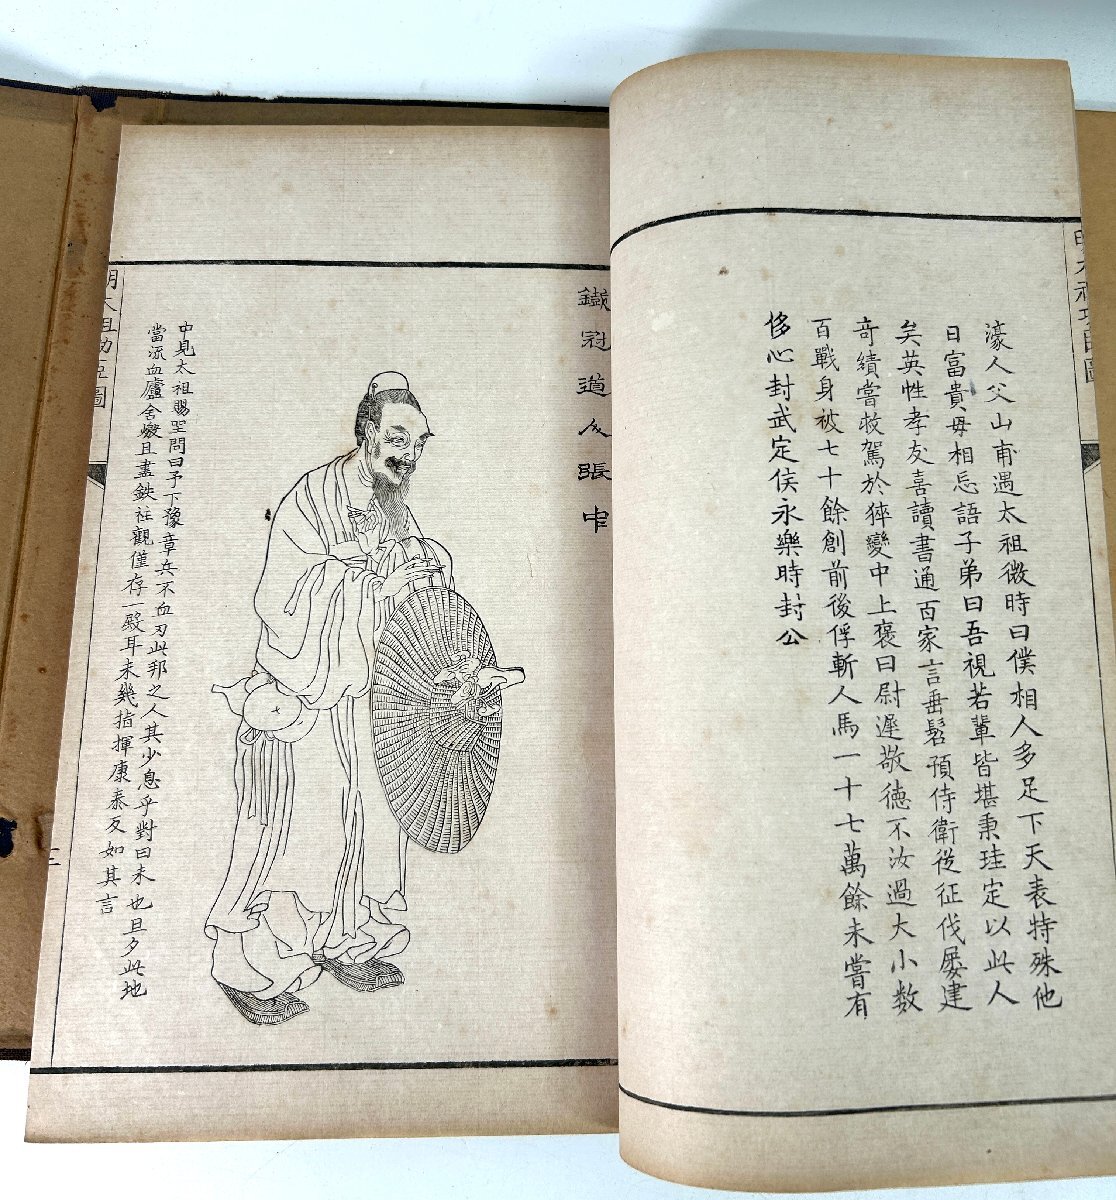 濠人父山甫遇太祖微時曰僕相人多足下天表特殊他
日富貴毋相忘語子弟曰吾視若輩皆堪秉珪定以此人
矣英性孝友喜讀書通百家言垂髫預侍衛從征伐屡建
奇績嘗救駕於猝變中上褒曰尉遲敬德不汝過大小数
百戰身被七十餘創前後俘斬人馬一十七萬餘未嘗有
侈心封武定侯永樂時封公
鐵冠道人張中
中見太祖賜坐問曰予下豫章兵不血刃此邦之人其少息乎對曰未也旦夕此地
當流血廬舍燬且盡鉄柱觀僅存一殿耳未幾指揮康泰反如其言
明太祖功臣圖
三